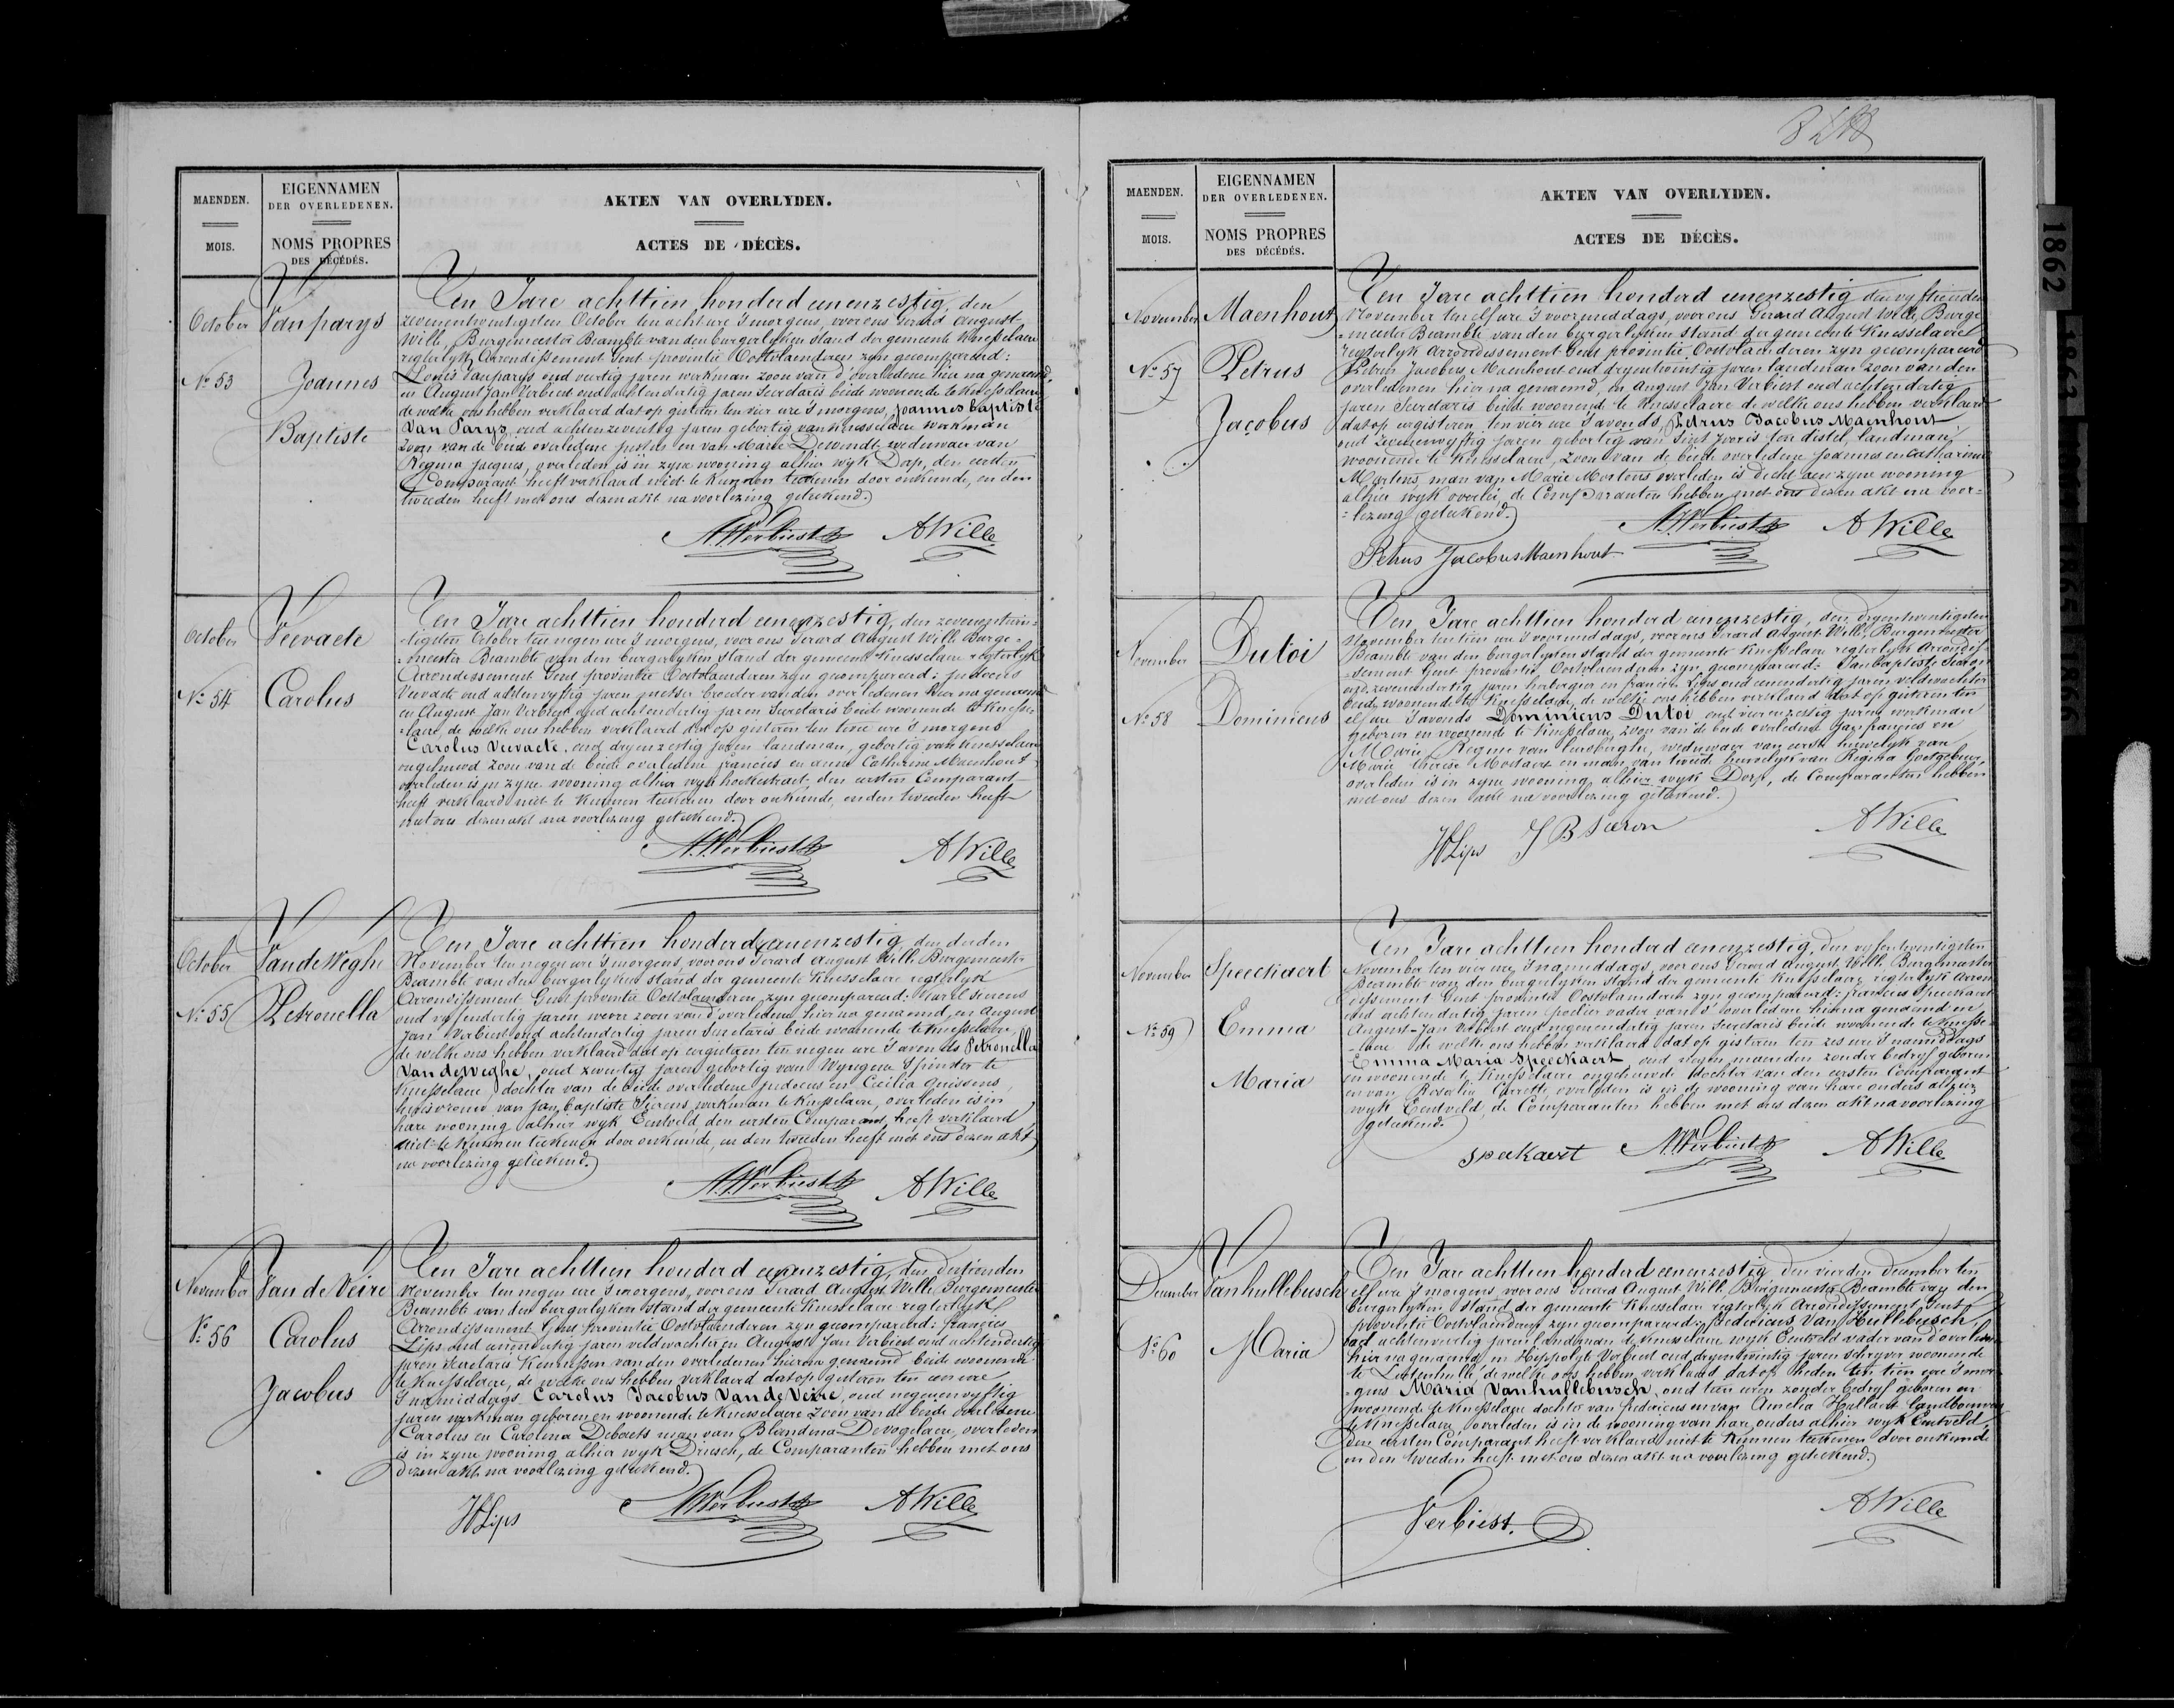 MAENDEN.
MOIS.
EIGENNAMEN
DER OVERLEDENEN.
NOMS PROPRES
DES DÉCÉDÉS.
AKTEN VAN OVERLYDEN.
ACTES DE DÉCÈS.
October
Nº 53
Vanparys
Joannes
Baptiste
Ten Jare achttien honderd eenenzestig, den
zevenentwintigsten October ten acht ure 's morgens, voor ons Gerard August
Wille, Burgemeester Beambte van den burgerlyken stand der gemeente Knesselaere
regterlyk Arrondissement Gent provintie Oostvlaenderen zyn gecompareerd:
Louis Vanparys oud veertig jaren werkman zoon van d'overledene hier na genaemd
en August Jan Verbiest oud achtendertig jaren Secretaris beide woonende te Knesselaere
de welke ons hebben verklaerd dat op gisteren ten vier ure 's morgens, Joannes Baptiste
Van Parys oud achtenzeventig jaren geboortig van Knesselaere werkman
zoon van de beide overledene Judocus en van Marie Dewindt, weduwaer van
Regina Jacques, overleden is in zyne wooning alhier wyk Dorp, den eersten
Comparant heeft verklaerd niet te kunnen teekenen door onkunde, en den
tweeden heeft met ons dezen akt na voorlezing geteekend.
A.J.Verbiest AWille
October
Nº 54
Vervaete
Carolus
Ten Jare achttien honderd eenenzestig, den zevenentwin-
-tigsten October ten negen ure 's morgens, voor ons Gerard August Wille Burge-
-meester Beambte van den burgerlyken stand der gemeente Knesselaere regterlyk
Arrondissement Gent provintie Oostvlaenderen zyn gecompareerd: Judocus
Vervaete oud achtenvyftig jaren pachter broeder van den overledenen hier na genaemd
en August Jan Verbiest oud achtendertig jaren Secretaris beide woonende te Knesse-
-laere, de welke ons hebben verklaerd dat op gisteren ten twee ure 's morgens
Carolus Vervaete, oud dryenzestig jaren landman, geboortig van Knesselaere
ongehuwd zoon van de beide overledene Francies en Anna Catherine Maenhout
overleden is in zyne wooning alhier wyk hoekestraet, den eersten Comparant
heeft verklaerd niet te kunnen teekenen door onkunde, en den tweeden heeft
met ons dezen akt na voorlezing geteekend.
A.J.Verbiest AWille
October
Nº 55
Van de Weghe
Petronella
Ten Jare achttien honderd eenenzestig, den derden
November ten negen ure 's morgens, voor ons Gerard August Wille Burgemeester
Beambte van den burgerlyken stand der gemeente Knesselaere regterlyk
Arrondissement Gent provintie Oostvlaenderen zyn gecompareerd: Karel Sierens
oud vyfendertig jaren wever zoon van d'overledene hier na genaemd, en August
Jan Verbiest oud achtendertig jaren Secretaris beide woonende te Knesselaere,
de welke ons hebben verklaerd dat op eergisteren ten negen ure 's avonds Petronella
Van de Weghe, oud zeventig jaren geboortig van Wyngene Spinster te
Knesselaere dochter van de beide overledene Judocus en Cecilia Quissens,
huisvrouw van Jan Baptiste Sierens werkman te Knesselaere, overleden is in
hare wooning alhier wyk Eentveld, den eersten Comparant heeft verklaerd
niet te kunnen teekenen door onkunde, en den tweeden heeft met ons dezen akt
na voorlezing geteekend.
A.J.Verbiest AWille
November
Nº 56
Van de Veire
Carolus
Jacobus
Ten Jare achttien honderd eenenzestig, den dertienden
November ten negen ure 's morgens, voor ons Gerard August Wille Burgemeester
Beambte van den burgerlyken stand der gemeente Knesselaere regterlyk
Arrondissement Gent provintie Oostvlaenderen zyn gecompareerd: Francies
Lips oud eenendertig jaren veldwachter en August Jan Verbiest oud achtendertig
jaren Secretaris Kennissen van den overledenen hierna genaemd beide woonende
te Knesselaere, de welke ons hebben verklaerd dat op gisteren ten een ure
's namiddags Carolus Jacobus Van de Veire, oud negenenvyftig
jaren werkman geboren en woonende te Knesselaere zoon van de beide overledene
Carolus en Carolina Debaets man van Blandina Devogelaere, overleden
is in zyne wooning alhier wyk Driesch, de Comparanten hebben met ons
dezen akt na voorlezing geteekend.
Lips A.J.Verbiest AWille
MAENDEN.
MOIS.
EIGENNAMEN
DER OVERLEDENEN.
NOMS PROPRES
DES DÉCÉDÉS.
AKTEN VAN OVERLYDEN.
ACTES DE DÉCÈS.
November
Nº 57
Maenhout
Petrus
Jacobus
Ten Jare achttien honderd eenenzestig den vyftienden
November ten elf ure 's voormiddags, voor ons Gerard August Wille, Burge-
-meester Beambte van den burgerlyken stand der gemeente Knesselaere
regterlyk Arrondissement Gent provintie Oostvlaenderen zyn gecompareerd
Petrus Jacobus Maenhout oud dryentwintig jaren landman zoon van den
overledenen hier na genaemd, en August Jan Verbiest oud achtendertig
jaren Secretaris beide woonende te Knesselaere de welke ons hebben verklaerd
dat op eergisteren ten vier ure 's avonds, Petrus Jacobus Maenhout
oud zevenenvyftig jaren geboortig van Sint Jooris ten distel, landman,
woonende te Knesselaere, zoon van de beide overledene Joannes en Catharina
Martens, man van Marie Mertens overleden is in zyne wooning
alhier wyk overlei, de Comparanten hebben met ons dezen akt na voor-
-lezing geteekend.
A.J.Verbiest AWille
Petrus Jacobus Maenhout
November
Nº 58
Dutoi
Dominicus
Ten Jare achttien honderd eenenzestig, den dryentwintigsten
November ten tien ure 's voormiddags, voor ons Gerard August Wille, Burgemeester
Beambte van den burgerlyken stand der gemeente Knesselaere regterlyk Arrondis-
-sement Gent provintie Oostvlaenderen zyn gecompareerd: Jan Baptiste Sieron
oud zevenendertig jaren herbergier en Francies Lips oud eenendertig jaren veldwachter
beide woonende te Knesselaere, de welke ons hebben verklaerd dat op gisteren ten
elf ure 's avonds Dominicus Dutoi oud vierenzestig jaren werkman
geboren en woonende te Knesselaere, zoon van de beide overledene Jan Francies en
Marie Regine van , weduwaer van eerste huwelyk van
Marie Therese Mostaert en man van tweede huwelyk van Regina Goetgebuer,
overleden is in zyne wooning alhier wyk Dorp, de Comparanten hebben
met ons dezen akt na voorlezing geteekend.
Lips J B Sieron AWille
November
Nº 59
Speeckaert
Emma
Maria
Ten Jare achttien honderd eenenzestig, den vyfentwintigsten
November ten vier ure 's namiddags, voor ons Gerard August Wille Burgemeester
Beambte van den burgerlyken stand der gemeente Knesselaere regterlyk Arron-
dissement Gent provintie Oostvlaenderen zyn gecompareerd: Francies Speeckaert
oud achtendertig jaren vader van d'overledene hierna genaemd en
August-Jan Verbiest oud negenendertig jaren Secretaris beide woonende te Knesse-
-laere de welke ons hebben verklaerd dat op gisteren ten zes ure 's namiddags
Emma Maria Speeckaert, oud negen maenden zonder bedryf geboren
en woonende te Knesselaere ongehuwde dochter van den eersten Comparant
en van Rosalie Carette, overleden is in de wooning van hare ouders alhier
wyk Eentveld, de Comparanten hebben met ons dezen akt na voorlezing
geteekend.
Speekaert A.J.Verbiest AWille
December
Nº 60
Vanhullebusch
Maria
Ten Jare achttien honderd eenenzestig den vierden December ten
elf ure 's morgens voor ons Gerard August Wille Burgemeester Beambte van den
burgerlyken stand der gemeente Knesselaere regterlyk Arrondissement Gent
provintie Oostvlaenderen zyn gecompareerd: Fredericus Van Hullebusch
oud achtenveertig jaren landman te Knesselaere wyk Eentveld vader van d'overledene
hier na genaemd en Hippolyte Verbiest oud dryentwintig jaren schryver woonende
te Lootenhulle, de welke ons hebben verklaerd dat op heden ten tien ure 's mor-
-gens Maria Vanhullebusch, oud tien uren zonder bedryf geboren en
woonende te Knesselaere dochter van Fredericus en van Amelia Hullaert landbouwers
te Knesselaere, overleden is in de wooning van hare ouders alhier wyk Eentveld,
den eersten Comparant heeft verklaerd niet te kunnen teekenen door onkunde
en den tweeden heeft met ons dezen akt na voorlezing geteekend.
Verbiest. AWille
1862